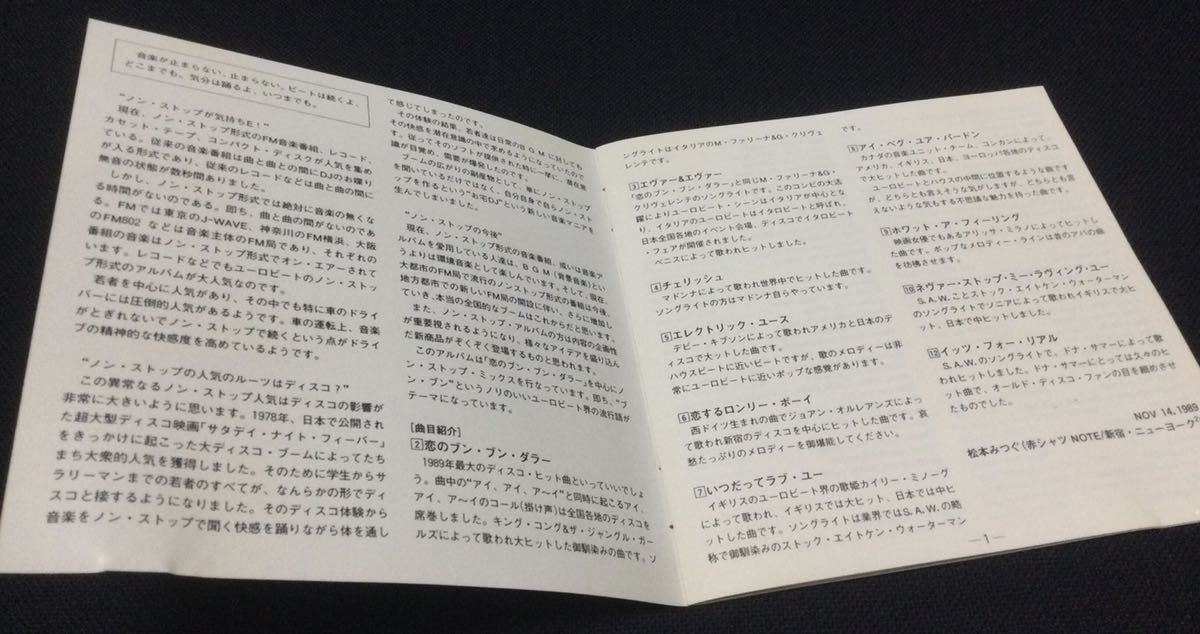 音楽が止まらない、止まらない。ビートは続くよ、
どこまでも。気分は踊るよ、いつまでも。
“ノン・ストップが気持ちE!”
現在、ノン・ストップ形式のFM音楽番組、レコード、
カセット・テープ、コンパクト・ディスクが人気を集め
ている。従来の音楽番組は曲と曲との間にDJのお喋り
が入る形式であり、従来のレコードなどは曲と曲の間に
無音の状態が数秒間ありました。
しかし、ノン・ストップ形式では絶対に音楽の無くな
る時間がないのである。即ち、曲と曲の間がないのであ
る。FMでは東京のJ-WAVE、神奈川のFM横浜、大阪
のFM802などは音楽主体のFM局であり、それぞれの
番組の音楽はノン・ストップ形式でオン・エアーされて
います。レコードなどでもユーロビートのノン・ストッ
プ形式のアルバムが大人気なのです。
若者を中心に人気があり、その中でも特に車のドライ
バーには圧倒的人気があるようです。車の運転上、音楽
がとぎれないでノン・ストップで続くという点がドライ
ブの精神的な快感度を高めているようです。
“ノン・ストップの人気のルーツはディスコ?”
この異常なるノン・ストップ人気はディスコの影響が
非常に大きいように思います。1978年、日本で公開され
た超大型ディスコ映画「サタデイ・ナイト・フィーバー」
をきっかけに起こった大ディスコ・ブームによってたち
まち大衆的人気を獲得しました。そのために学生からサ
ラリーマンまでの若者のすべてが、なんらかの形でディ
スコと接するようになりました。そのディスコ体験から
音楽をノン・ストップで聞く快感を踊りながら体を通し
て感じてしまったのです。
その体験の結果、若者達は日常のBGMに対しても
その快感を潜在意識の中で求めるようになっていたので
す。従ってそのソフトが提供された時に一挙に、潜在意
識が目覚め、需要が爆発したのです。
ブームの広がりの副産物として、単にノン・ストップ
を聞いているだけではなく、自分自身で自らノン・スト
ップを作るという“お宅DJ”という新しい音楽マニアを
生んでしまいました。
“ノン・ストップの今後”
現在、ノン・ストップ形式の音楽番組、或いは音楽ア
ルバムを愛用している人達は、BGM(背景音楽)とい
うよりは環境音楽として楽しんでいます。そして、現在、
大都市のFM局で流行のノンストップ形式の番組は今後、
地方都市での新しいFM局の開設に伴い、さらに増加し
ていき、本当の全国的なブームはこれからだと思います。
また、ノン・ストップ・アルバムの方は内容の企画性
が重要視されるようになり、様々なアイデアを盛り込ん
だ新商品がぞくぞく登場するものと思われます。
このアルバムは「恋のブン・ブン・ダラー」を中心にノ
ン・ストップ・ミックスを行なっています。即ち、“ブ
ン・ブン”というノリのいいユーロビート界の流行語が
テーマになっています。
[曲目紹介]
2 恋のブン・ブン・ダラー
1989年最大のディスコ・ヒット曲といっていいでしょ
う。曲中の“アイ、アイ、アーイ”と同時に起こるアイ、
アイ、アーイのコール(掛け声)は全国各地のディスコを
席巻しました。キング・コング&ザ・ジャングル・ガー
ルズによって歌われ大ヒットした御馴染みの曲です。ソ
ングライトはイタリアのM・ファリーナ&G・クリヴェ
レンテです。
3 エヴァー&エヴァー
「恋のブン・ブン・ダラー」と同じM・ファリーナ&G・
クリヴェレンテのソングライトです。このコンビの大活
躍によりユーロビート・シーンはイタリアが中心とな
り、イタリアのユーロビートはイタロビートと呼ばれ、
日本全国各地のイベント会場、ディスコでイタロビート
・フェアが開催されました。
ベニスによって歌われヒットしました。
4 チェリッシュ
マドンナによって歌われ世界中でヒットした曲です。
ソングライトの方はマドンナ自らやっています。
5 エレクトリック・ユース
デビー・ギブソンによって歌われアメリカと日本のデ
ィスコで大ットした曲です。
ハウスビートに近いビートですが、歌のメロディーは非
常にユーロビートに近いポップな感覚があります。
6 恋するロンリー・ボーイ
西ドイツ生まれの曲でジョアン・オルレアンズによっ
て歌われ新宿のディスコを中心にヒットした曲です。哀
愁たっぷりのメロディーを御堪能してください。
7 いつだってラブ・ユー
イギリスのユーロビート界の歌姫カイリー・ミノーグ
によって歌われ、イギリスでは大ヒット、日本では中ヒ
ットした曲です。ソングライトは業界ではS.A.W.の略
称で御馴染みのストック・エイトケン・ウォーターマン
です。
8 アイ・ベグ・ユア・パードン
カナダの音楽ユニット・チーム、コンカンによって、
アメリカ、イギリス、日本、ヨーロッパ各地のディスコ
で大ヒットした曲です。
ユーロビートとハウスの中間に位置するような曲です
が、どちらとも言えそうな気がしますが、どちらとも言
えないような気もする不思議な魅力を持った曲です。
9 ホワット・ア・フィーリング
映画女優でもあるアリッサ・ミラノによってヒットし
た曲です。ポップなメロディー・ラインは昔のアバの曲
を彷彿させます。
10 ネヴァー・ストップ・ミー・ラヴィング・ユー
S.A.W.ことストック・エイトケン・ウォーターマン
のソングライトでソニアによって歌われイギリスで大ヒ
ット、日本で中ヒットしました。
12 イッツ・フォー・リアル
S.A.W.のソングライトで、ドナ・サマーによって歌
われヒットしました。ドナ・サマーにとっては久々のヒ
ット曲で、オールド・ディスコ・ファンの目を細めさせ
たものでした。
NOV 14.1989
松本みつぐ(赤シャツ NOTE/新宿・ニューヨーク
—1—